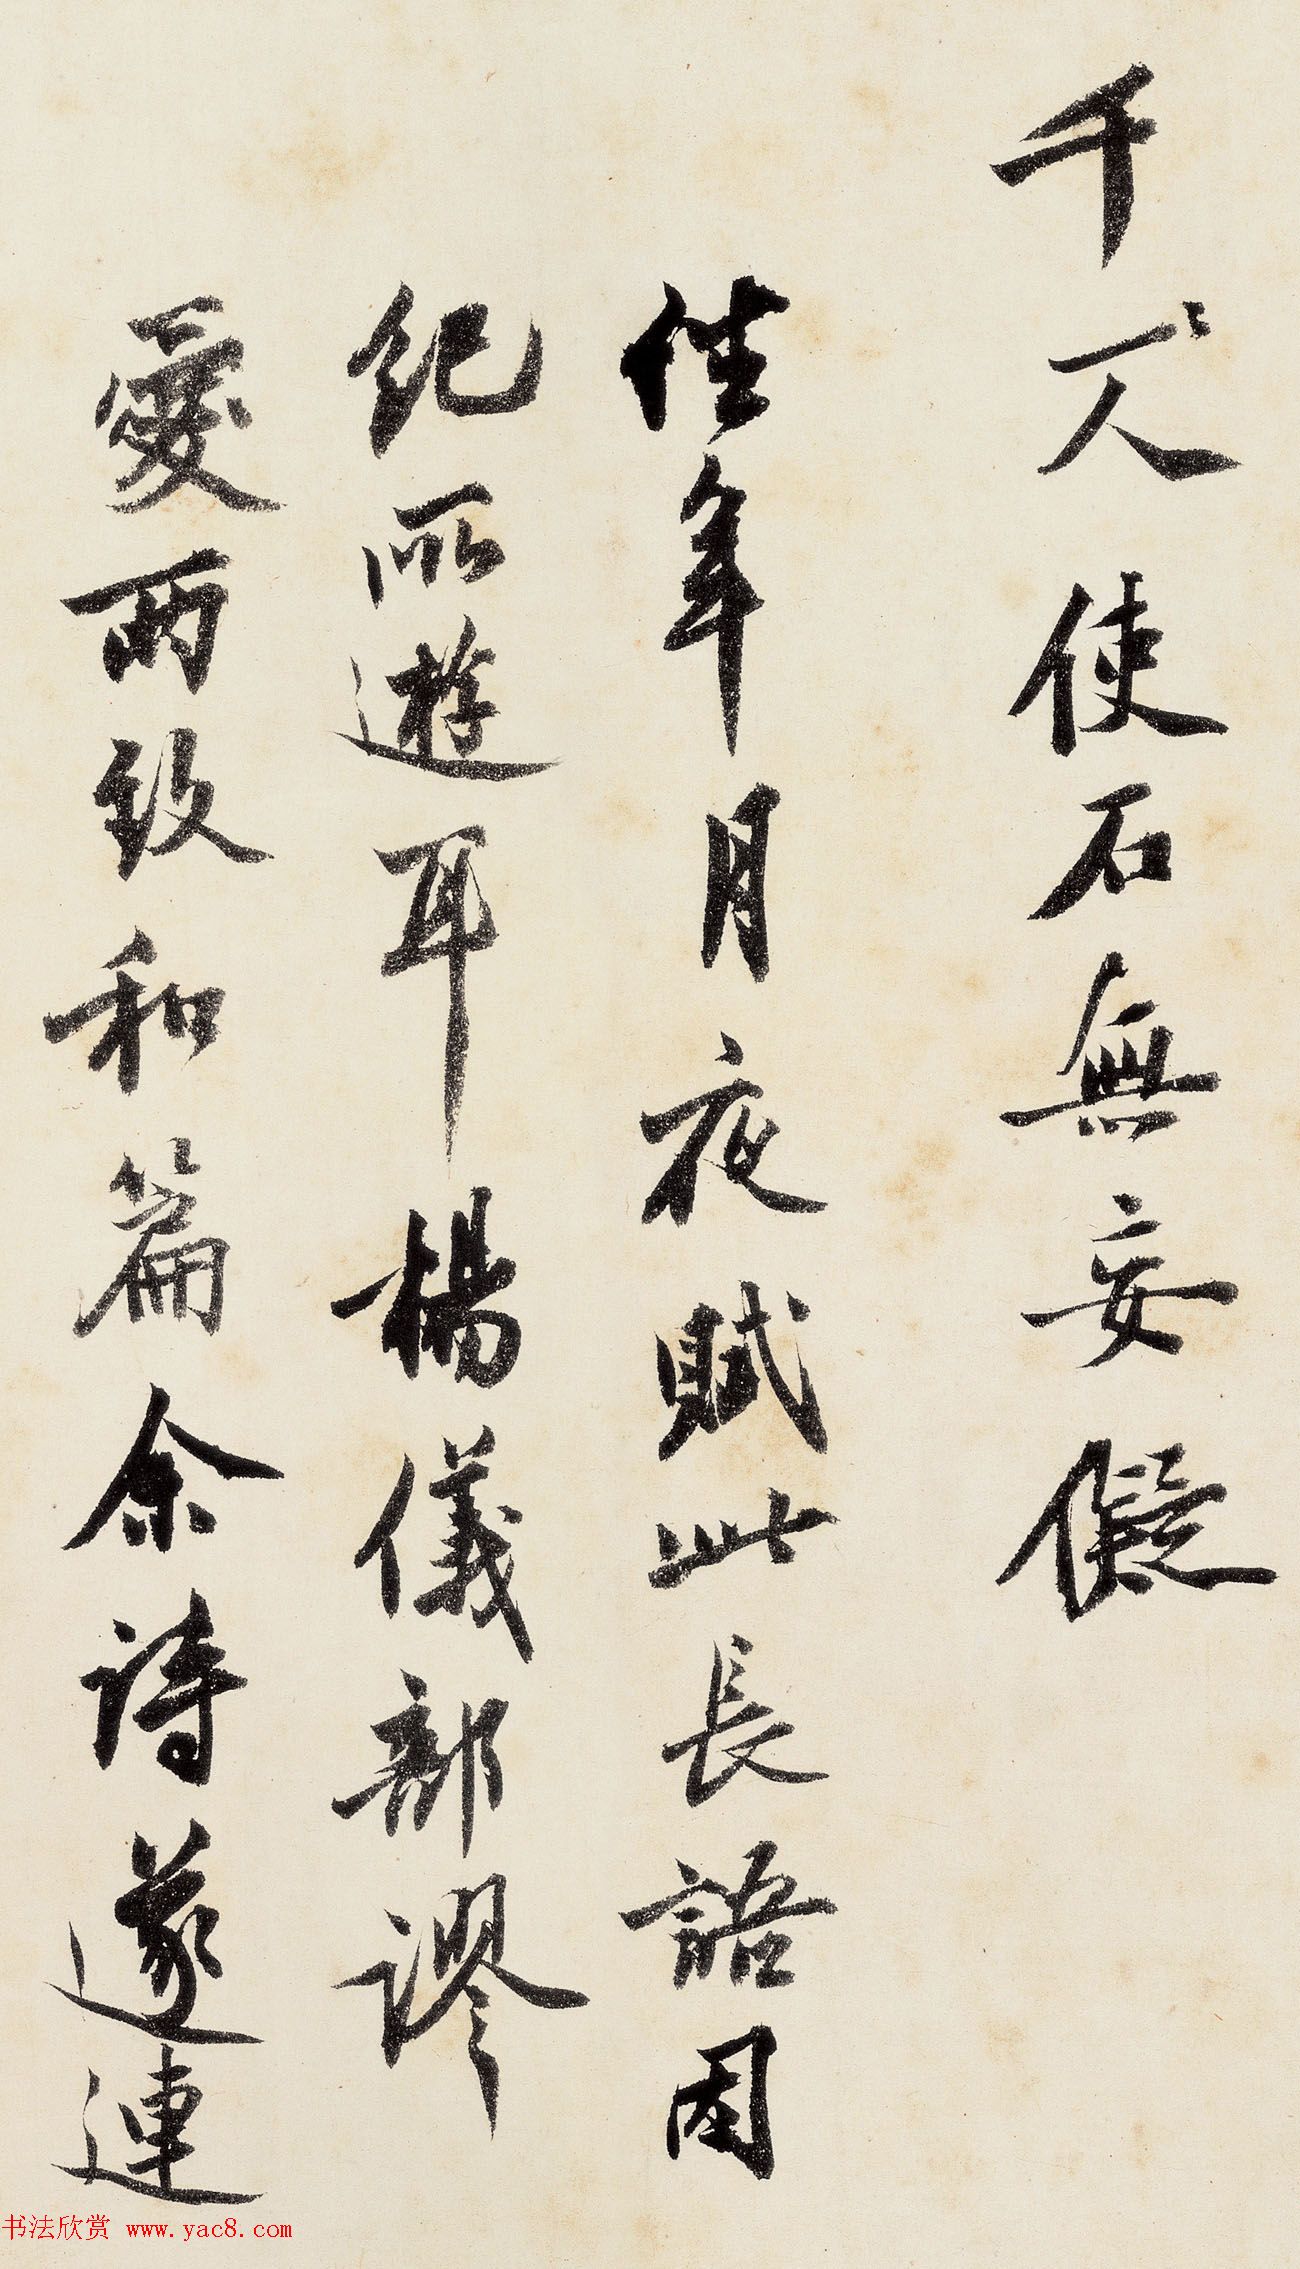 千使石無妄儗
往年月夜賦此長語因
紀所遊耳楊儀部謬
愛兩致和篇余詩遂連
书法欣赏 www.yac8.com